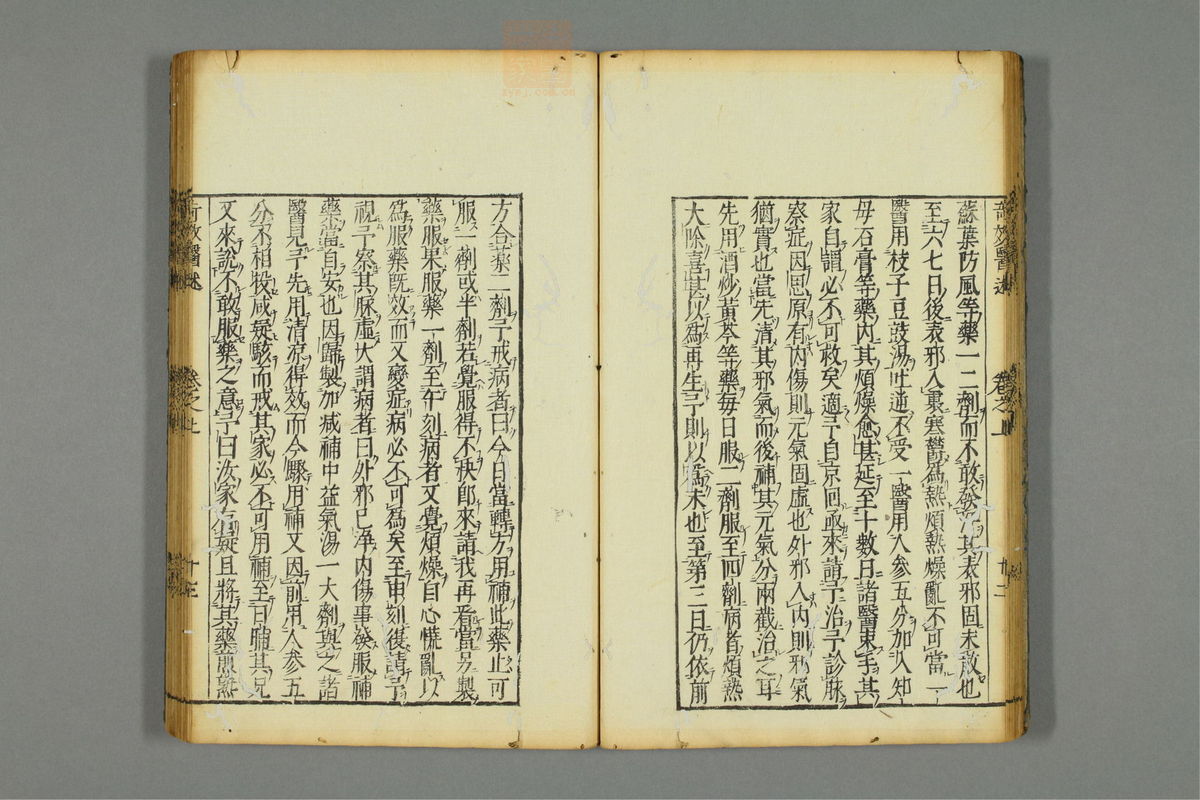 蘇葉防風等藥一二劑而不敢發其表邪固未散也
至六七日後表邪入裏寒鬱爲熱煩熱燥亂不可當一
醫用枝子豆豉湯吐逆不受一醫用人參五分加入知
毋石膏等藥內其煩燥愈甚延至十數日諸醫束手其
家自謂必不可救矣適予自京囘亟來請予治予診脉
察症因思原有內傷則元氣固虛也外邪入內則邪氣
猶實也當先清其邪氣而後補其元氣分兩截治之耳
先用酒炒黃芩等藥每日服二劑服至四劑病者煩熱
大除喜甚以爲再生予則以爲未也至第三日仍依前
方合藥二劑予戒病者曰今日當轉方用補此藥止可
服一劑或半劑若覺服得不快卽來請我再看當另製
藥服果服藥一劑至午刻病者又覺煩燥自心慌亂以
爲服藥旣效而又變症病必不可爲矣至申刻復請予
視予察其脉虛大謂病者曰外邪已淨內傷事發服補
藥當自安也因歸製加减補中益氣湯一大劑與之諸
醫見予先用清凉得效而今驟用補又因前用人參五
分不相投咸疑駭而戒其家必不可用補至日晡其兄
又來說不敢服藥之意予曰汝家有疑且將其藥煎熟
奇效醫述
卷之上